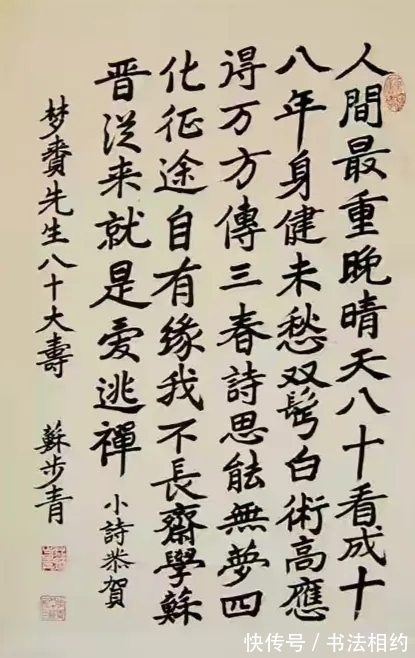 人間最重晚晴天八十看成十
八年身健未愁双鬓白術高應
得万方傳三春詩思能無夢四
化征途自有緣我不長齋學蘇
晋従来就是爱逃禪 小詩恭賀
梦賚先生八十大壽 蘇步青
快传号 / 书法相约